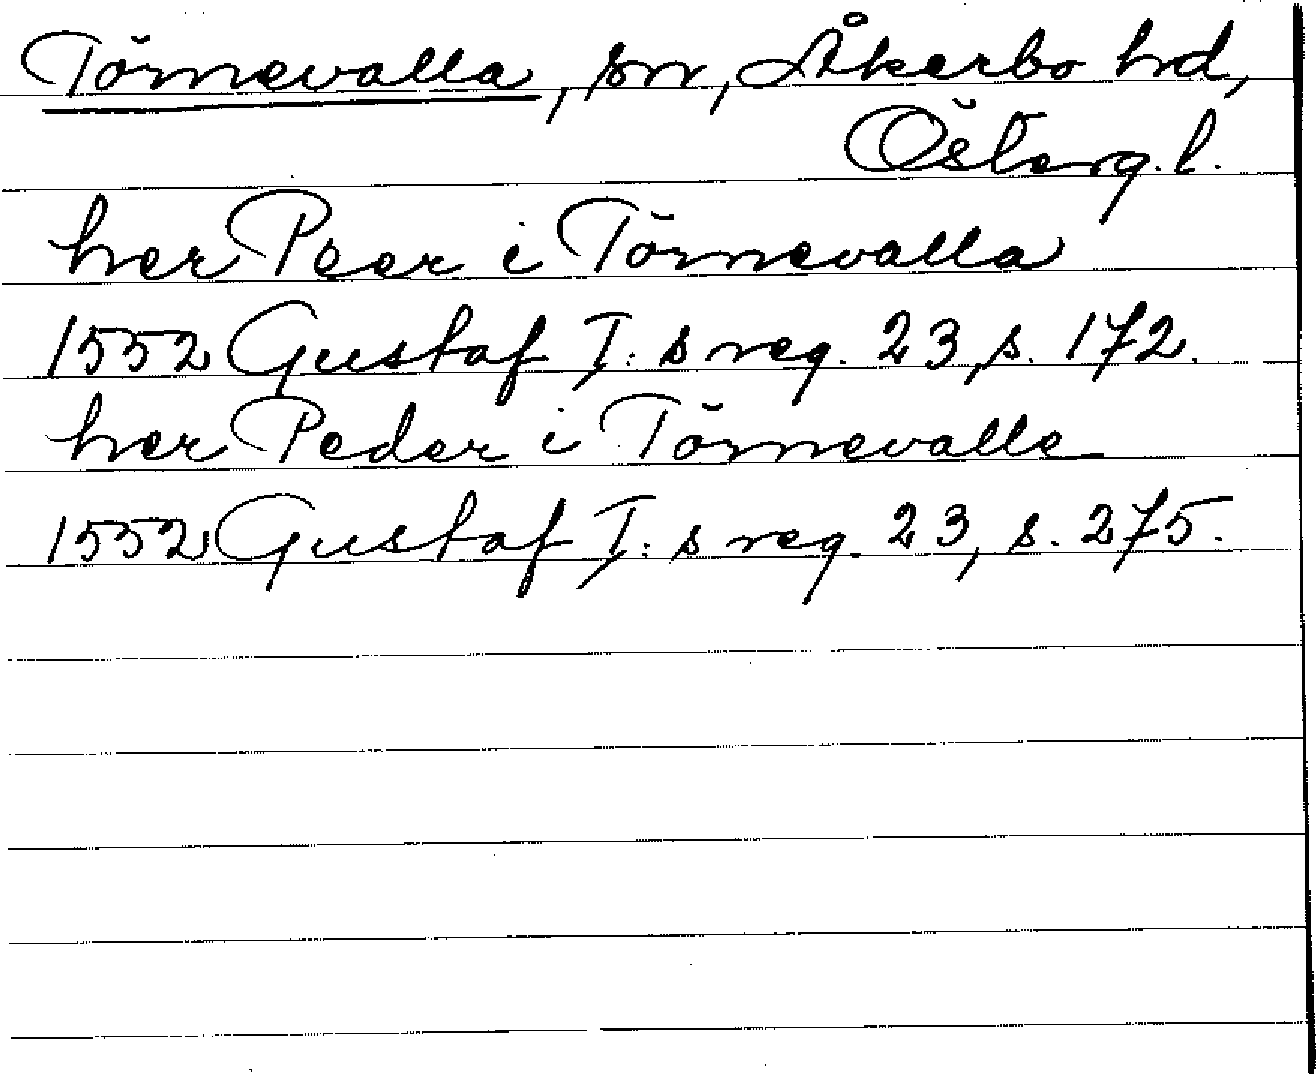 Törnevalla, sn, Åkerbo hd,
Österg. l.
her Peer i Törnevalla
1552 Gustaf I: s reg. 23, s. 172.
her Peder i Törnevalle
1552 Gustaf I: s reg. 23, s. 275.